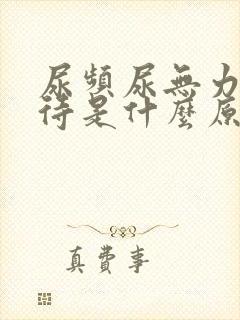 尿頻尿無力
待是什麼原
真費事